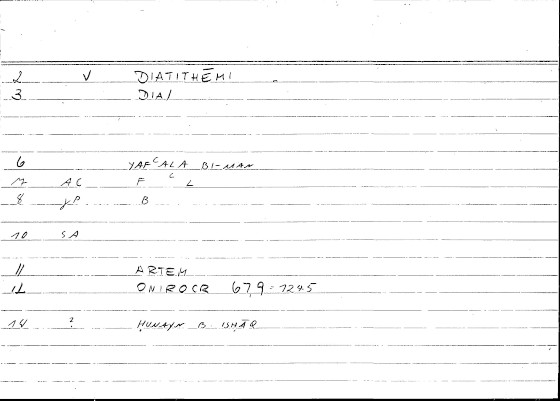 2 V DIATITHĒMI
3 DIA/
6 YAFᶜALA BI-MAN
7 AC F ᶜ L
8 JP B
10 SA
11 ARTEM
12 ONIROCR 67,9 = 124,5
14 ? ḤUNAYN B. ISḤĀQ